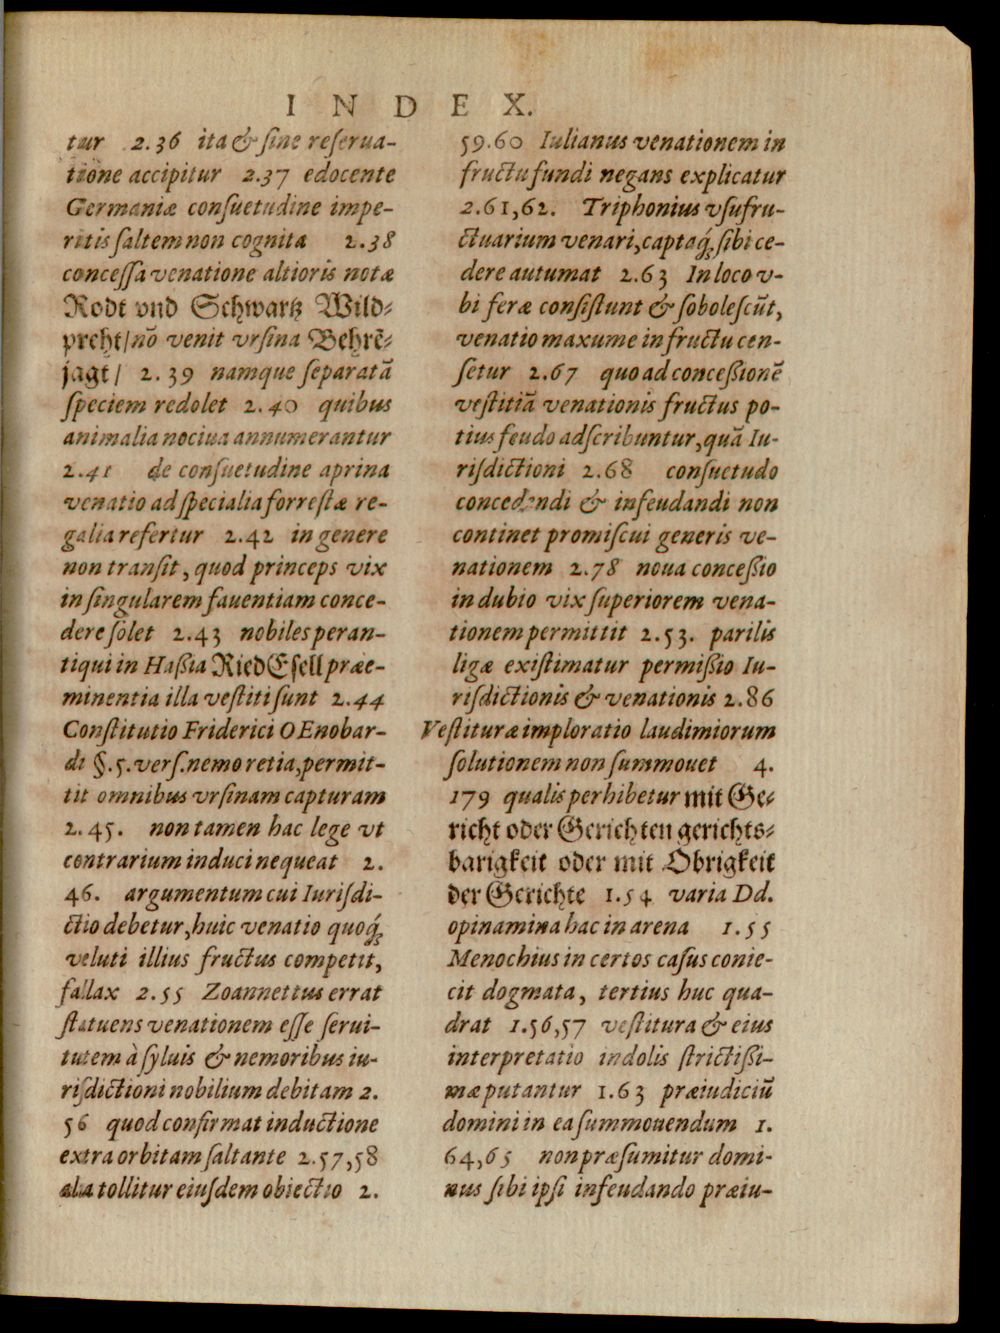 INDEX.
tur 2.36 ita & sine reserua-
tione accipitur 2.37 edocente
Germaniæ consuetudine impe-
ritis saltem non cognita 2.38
concessa venatione altioris notæ
Rodt vnd Schwartz Wild-
preht/ nõ venit vrsina Behrẽ-
jagt/ 2.39 namque separatã
speciem redolet 2.40 quibus
animalia nociua annumerantur
2.41 de consuetudine aprina
venatio ad specialia forrestæ re-
galia refertur 2.42 in genere
non transit, quod princeps vix
in singularem fauentiam conce-
dere solet 2.43 nobiles peran-
tiqui in Haßia RiedEsell præe-
minentia illa vestiti sunt 2.44
Constitutio Friderici OEnobar-
di §.5. vers. nemo retia, permit-
tit omnibus vrsinam capturam
2.45. non tamen hac lege vt
contrarium induci nequeat 2.
46. argumentum cui Iurisdi-
ctio debetur, huic venatio quoq́;
veluti illius fructus competit,
fallax 2.55 Zoannettus errat
statuens venationem esse serui-
tutem à syluis & nemoribus iu-
risdictioni nobilium debitam 2.
56 quod confirmat inductione
extra orbitam saltante 2.57,58
alia tollitur eiusdem obiectio 2.
59.60 Iulianus venationem in
fructu fundi negans explicatur
2.61,62. Triphonius vsufru-
ctuarium venari, captaq́; sibi ce-
dere autumat 2.63 In loco v-
bi feræ consistunt & sobolescũt,
venatio maxume in fructu cen-
setur 2.67 quo ad concessionẽ
vestitiã venationis fructus po-
tius feudo adscribuntur, quã Iu-
risdictioni 2.68 consuetudo
concedendi & infeudandi non
continet promiscui generis ve-
nationem 2.78 noua conceßio
in dubio vix superiorem vena-
tionem permittit 2.53. parilis
ligæ existimatur permißio Iu-
risdictionis & venationis 2.86
Vestituræ imploratio laudimiorum
solutionem non summouet 4.
179 qualis perhibetur mit Ge-
richt oder Gerichten gerichts-
barigkeit oder mit Obrigkeit
der Gerichte 1.54 varia Dd.
opinamina hac in arena 1.55
Menochius in certos casus conie-
cit dogmata, tertius huc qua-
drat 1.56,57 vestitura & eius
interpretatio indolis strictißi-
mæ putantur 1.63 præiudiciũ
domini in ea summouendum 1.
64,65 non præsumitur domi-
nus sibi ipsi infeudando præiu-